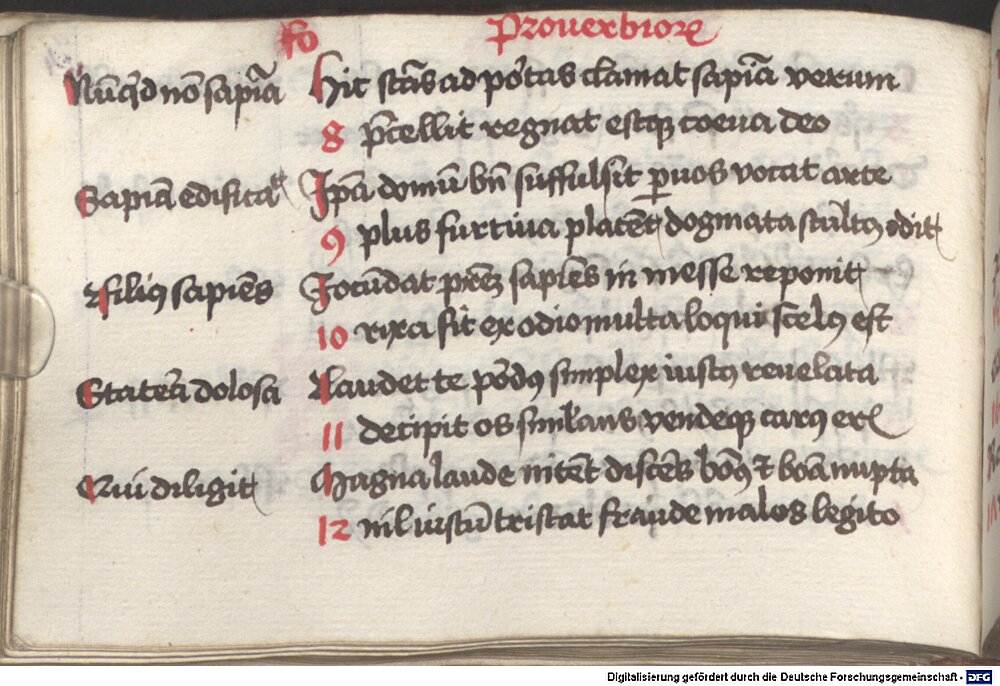 fo Prouerbiorꝝ
Nūq̄d nō sapīa Hic stās ad portas clamat sapīa verum
8 p̄cellit regnat estqꝫ coeua deo
Sapīa edificat Ip̄a domū bn̄ suffulsit ꝑuos vocat arte
9 plus furtiua placēt dogmata stultꝰ odit
Filiꝰ sapiēs Iocūdat pr̄eꝫ sapiēs in messe reponit
10 rixa fit ex odio multa loqui scelꝰ est
Statera dolosa Claudet te pōdꝰ simplex iustꝰ reuelata
11 decipit os simlans vendeqꝫ carꝰ eris
Qui diligit Magna laude nitēt discēs bonꝰ et bōa nupta
12 nil iustū tristat fraude malos legito
Digitalisierung gefördert durch die Deutsche Forschungsgemeinschaft - DFG